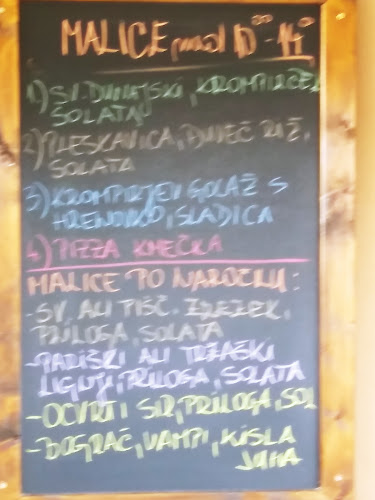 MALICE med 10⁰⁰ - 14⁰⁰
1) SV. DUNAJSKI, KROMPIRČEK
SOLATA
2) PLESKAVICA, ĐUVEČ RIŽ,
SOLATA
3) KROMPIRJEV GOLAŽ S
HRENOVKO, SLADICA
4) PIZZA KMEČKA
MALICE PO NAROČILU:
- SV. ALI PIŠČ. ZREZEK,
PRILOGA, SOLATA
- PARIŠKI ALI TRŽAŠKI
LIGNJI, PRILOGA, SOLATA
- OCVRTI SIR, PRILOGA, SOL
- BOGRAČ, VAMPI, KISLA
JUHA